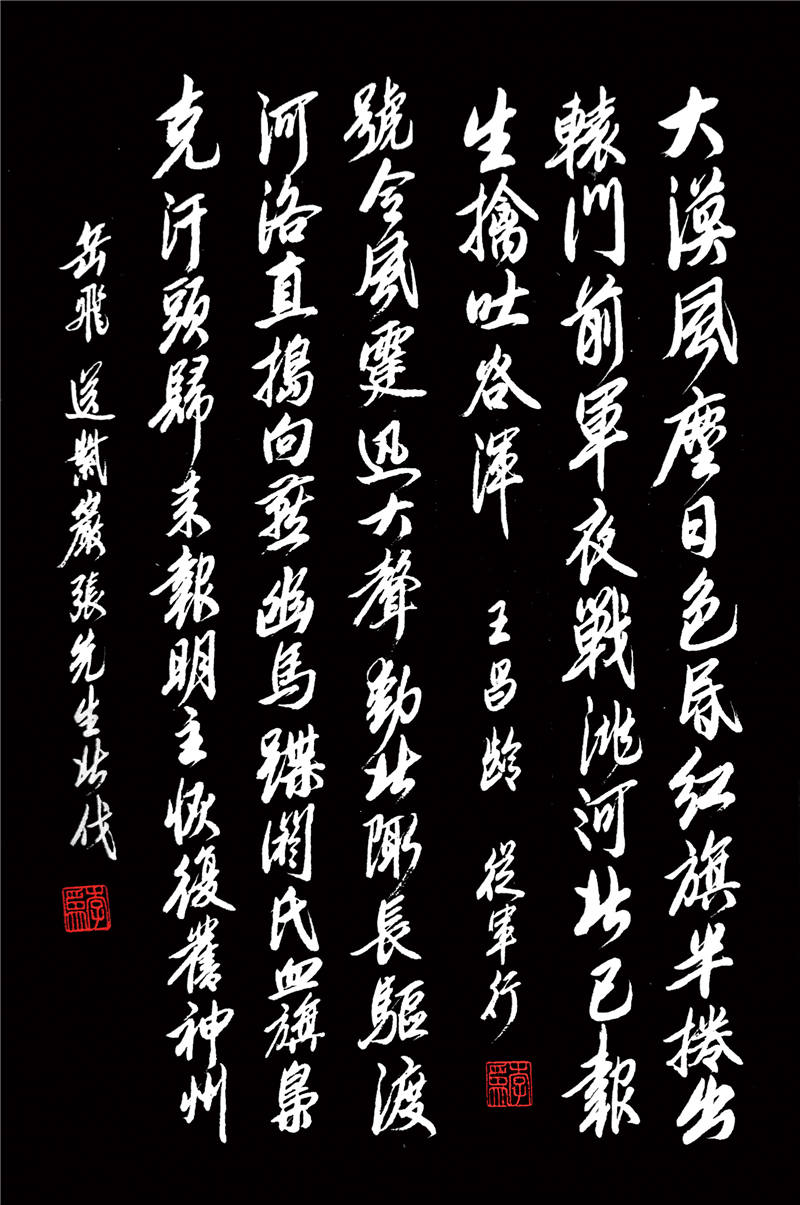 大漠風塵日色昏紅旗半捲出
轅門前軍夜戰洮河北已報
生擒吐谷渾 王昌齡 從軍行
號令風霆迅大聲動北陬長驅渡
河洛直搗向燕幽馬蹀閼氏血旗梟
克汗頭歸来報明主恢復舊神州
岳飛 送紫巖張先生北伐